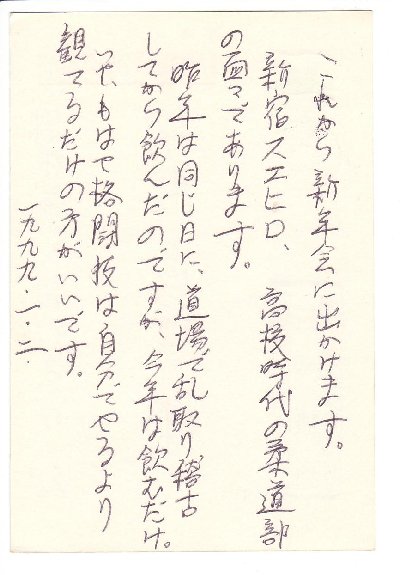 これから新年会に出かけます。
新宿スエヒロ、高校時代の柔道部
の面々であります。
昨年は同じ日に、道場で乱取り稽古
してから飲んだのですが、今年は飲むだけ。
いや、もはや格闘技は自分でやるより
観てるだけの方がいいです。
一九九九・一・二